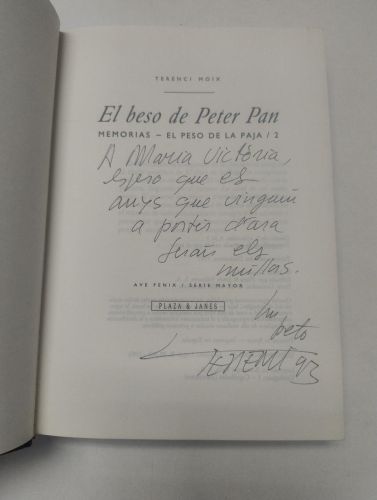 TERENCI MOIX
El beso de Peter Pan
MEMORIAS – EL PESO DE LA PAJA / 2
A Maria Victòria,
espero que els
anys que vinguin
a partir d'ara
seran els
millors.
AVE FENIX / SERIE MAYOR
PLAZA & JANES
Un
peto
TERENCI 93